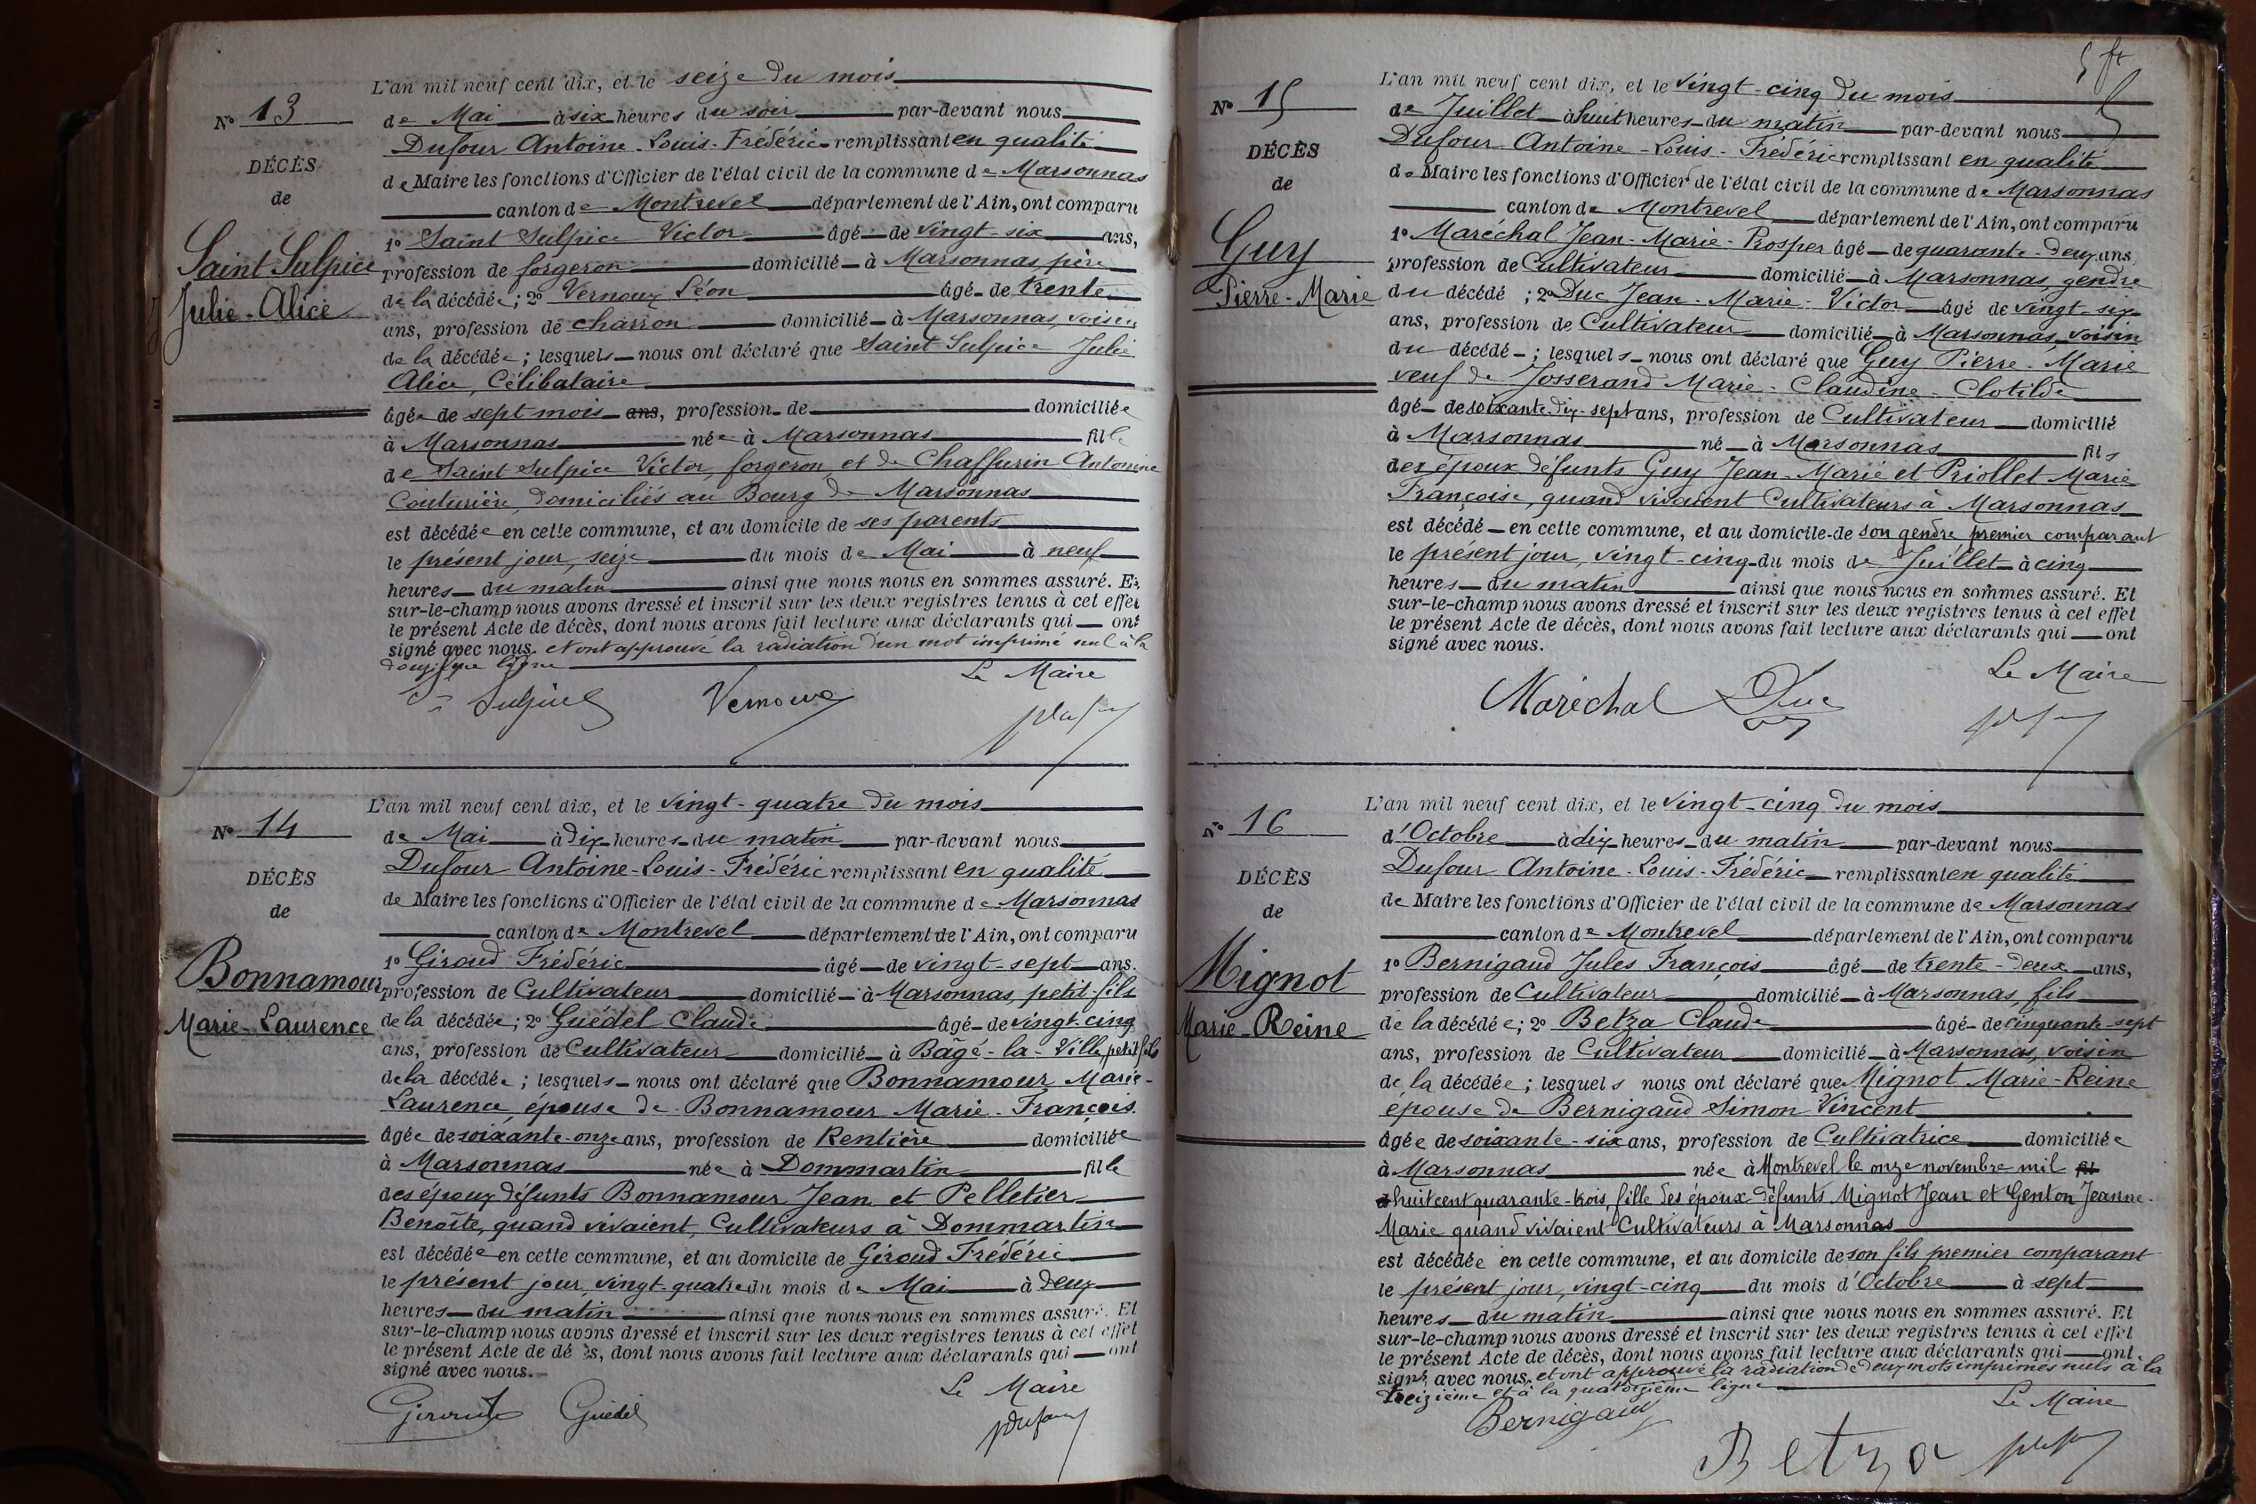 L'an mil neuf cent dix, et le seize du mois
N° 13
de Mai à six heures du soir par-devant nous
Dufour Antoine-Louis-Frédéric remplissant en qualité
DÉCÈS
de Maire les fonctions d'Officier de l'état civil de la commune de Marsonnas
de
canton de Montrevel département de l'Ain, ont comparu
1° Saint Sulpice Victor âgé de vingt-six ans,
Saint Sulpice
profession de forgeron domicilié à Marsonnas, père
Julie-Alice
de la décédée; 2° Vernoux Léon âgé de trente
ans, profession de charron domicilié à Marsonnas, voisin
de la décédée; lesquels nous ont déclaré que Saint Sulpice Julie
Alice, Célibataire
âgée de sept mois ans, profession de domiciliée
à Marsonnas née à Marsonnas fille
de Saint Sulpice Victor, forgeron et de Chaffurin Antonine
Couturière, domiciliés au Bourg de Marsonnas
est décédée en cette commune, et au domicile de ses parents
le présent jour, seize du mois de Mai à neuf
heures du matin ainsi que nous nous en sommes assuré. Et
sur-le-champ nous avons dressé et inscrit sur les deux registres tenus à cet effet
le présent Acte de décès, dont nous avons fait lecture aux déclarants qui ont
signé avec nous. et ont approuvé la radiation d'un mot imprimé nul à la
douzième ligne
Le Maire
St Sulpice Vernoux
L'an mil neuf cent dix, et le vingt-quatre du mois
N° 14
de Mai à dix heures du matin par-devant nous
Dufour Antoine-Louis-Frédéric remplissant en qualité
DÉCÈS
de Maire les fonctions d'Officier de l'état civil de la commune de Marsonnas
de
canton de Montrevel département de l'Ain, ont comparu
1° Giroud Frédéric âgé de vingt-sept ans.
Bonnamour
profession de Cultivateur domicilié à Marsonnas, petit-fils
Marie-Laurence
de la décédée; 2° Guédel Claude âgé de vingt-cinq
ans, profession de Cultivateur domicilié à Bâgé-la-Ville, petit fils
de la décédée; lesquels nous ont déclaré que Bonnamour Marie-
Laurence, épouse de Bonnamour Marie-François.
âgée de soixante-onze ans, profession de Rentière domiciliée
à Marsonnas née à Dommartin fille
des époux défunts Bonnamour Jean et Pelletier
Benoîte, quand vivaient, Cultivateurs à Dommartin
est décédée en cette commune, et au domicile de Giroud Frédéric
le présent jour, vingt-quatre du mois de Mai à deux
heures du matin ainsi que nous nous en sommes assuré. Et
sur-le-champ nous avons dressé et inscrit sur les deux registres tenus à cet effet
le présent Acte de décès, dont nous avons fait lecture aux déclarants qui ont
signé avec nous.
Le Maire
Giroud Guédel Dufour
5 ft
L'an mil neuf cent dix, et le vingt-cinq du mois
N° 15
de Juillet à huit heures du matin par-devant nous
Dufour Antoine-Louis-Frédéric remplissant en qualité
DÉCÈS
de Maire les fonctions d'Officier de l'état civil de la commune de Marsonnas
de
canton de Montrevel département de l'Ain, ont comparu
1° Maréchal Jean-Marie-Prosper âgé de quarante-deux ans,
Guy
profession de Cultivateur domicilié à Marsonnas, gendre
Pierre-Marie
du décédé; 2° Duc Jean-Marie-Victor âgé de vingt-six
ans, profession de Cultivateur domicilié à Marsonnas, voisin
du décédé; lesquels nous ont déclaré que Guy Pierre-Marie
veuf de Josserand Marie-Claudine-Clotilde
âgé de soixante-dix-sept ans, profession de Cultivateur domicilié
à Marsonnas né à Marsonnas fils
des époux défunts Guy Jean-Marie et Priollet Marie
Françoise, quand vivaient Cultivateurs à Marsonnas
est décédé en cette commune, et au domicile de son gendre premier comparant
le présent jour, vingt-cinq du mois de Juillet à cinq
heures du matin ainsi que nous nous en sommes assuré. Et
sur-le-champ nous avons dressé et inscrit sur les deux registres tenus à cet effet
le présent Acte de décès, dont nous avons fait lecture aux déclarants qui ont
signé avec nous.
Le Maire
Maréchal Duc
L'an mil neuf cent dix, et le vingt-cinq du mois
N° 16
d'Octobre à dix heures du matin par-devant nous
Dufour Antoine-Louis-Frédéric remplissant en qualité
DÉCÈS
de Maire les fonctions d'Officier de l'état civil de la commune de Marsonnas
de
canton de Montrevel département de l'Ain, ont comparu
1° Bernigaud Jules François âgé de trente-deux ans,
Mignot
profession de Cultivateur domicilié à Marsonnas, fils
Marie-Reine
de la décédée; 2° Betza Claude âgé de cinquante-sept
ans, profession de Cultivateur domicilié à Marsonnas, voisin
de la décédée; lesquels nous ont déclaré que Mignot Marie-Reine
épouse de Bernigaud Simon Vincent
âgée de soixante-six ans, profession de Cultivatrice domiciliée
à Marsonnas née à Montrevel le onze novembre mil fil
d huit cent quarante-trois, fille des époux défunts Mignot Jean et Genton Jeanne-
Marie quand vivaient Cultivateurs à Marsonnas
est décédée en cette commune, et au domicile de son fils premier comparant
le présent jour, vingt-cinq du mois d'Octobre à sept
heures du matin ainsi que nous nous en sommes assuré. Et
sur-le-champ nous avons dressé et inscrit sur les deux registres tenus à cet effet
le présent Acte de décès, dont nous avons fait lecture aux déclarants qui ont
signé avec nous. et ont approuvé la radiation de deux mots imprimés nuls à la
treizième et à la quatorzième ligne
Le Maire
Bernigaud
Betza